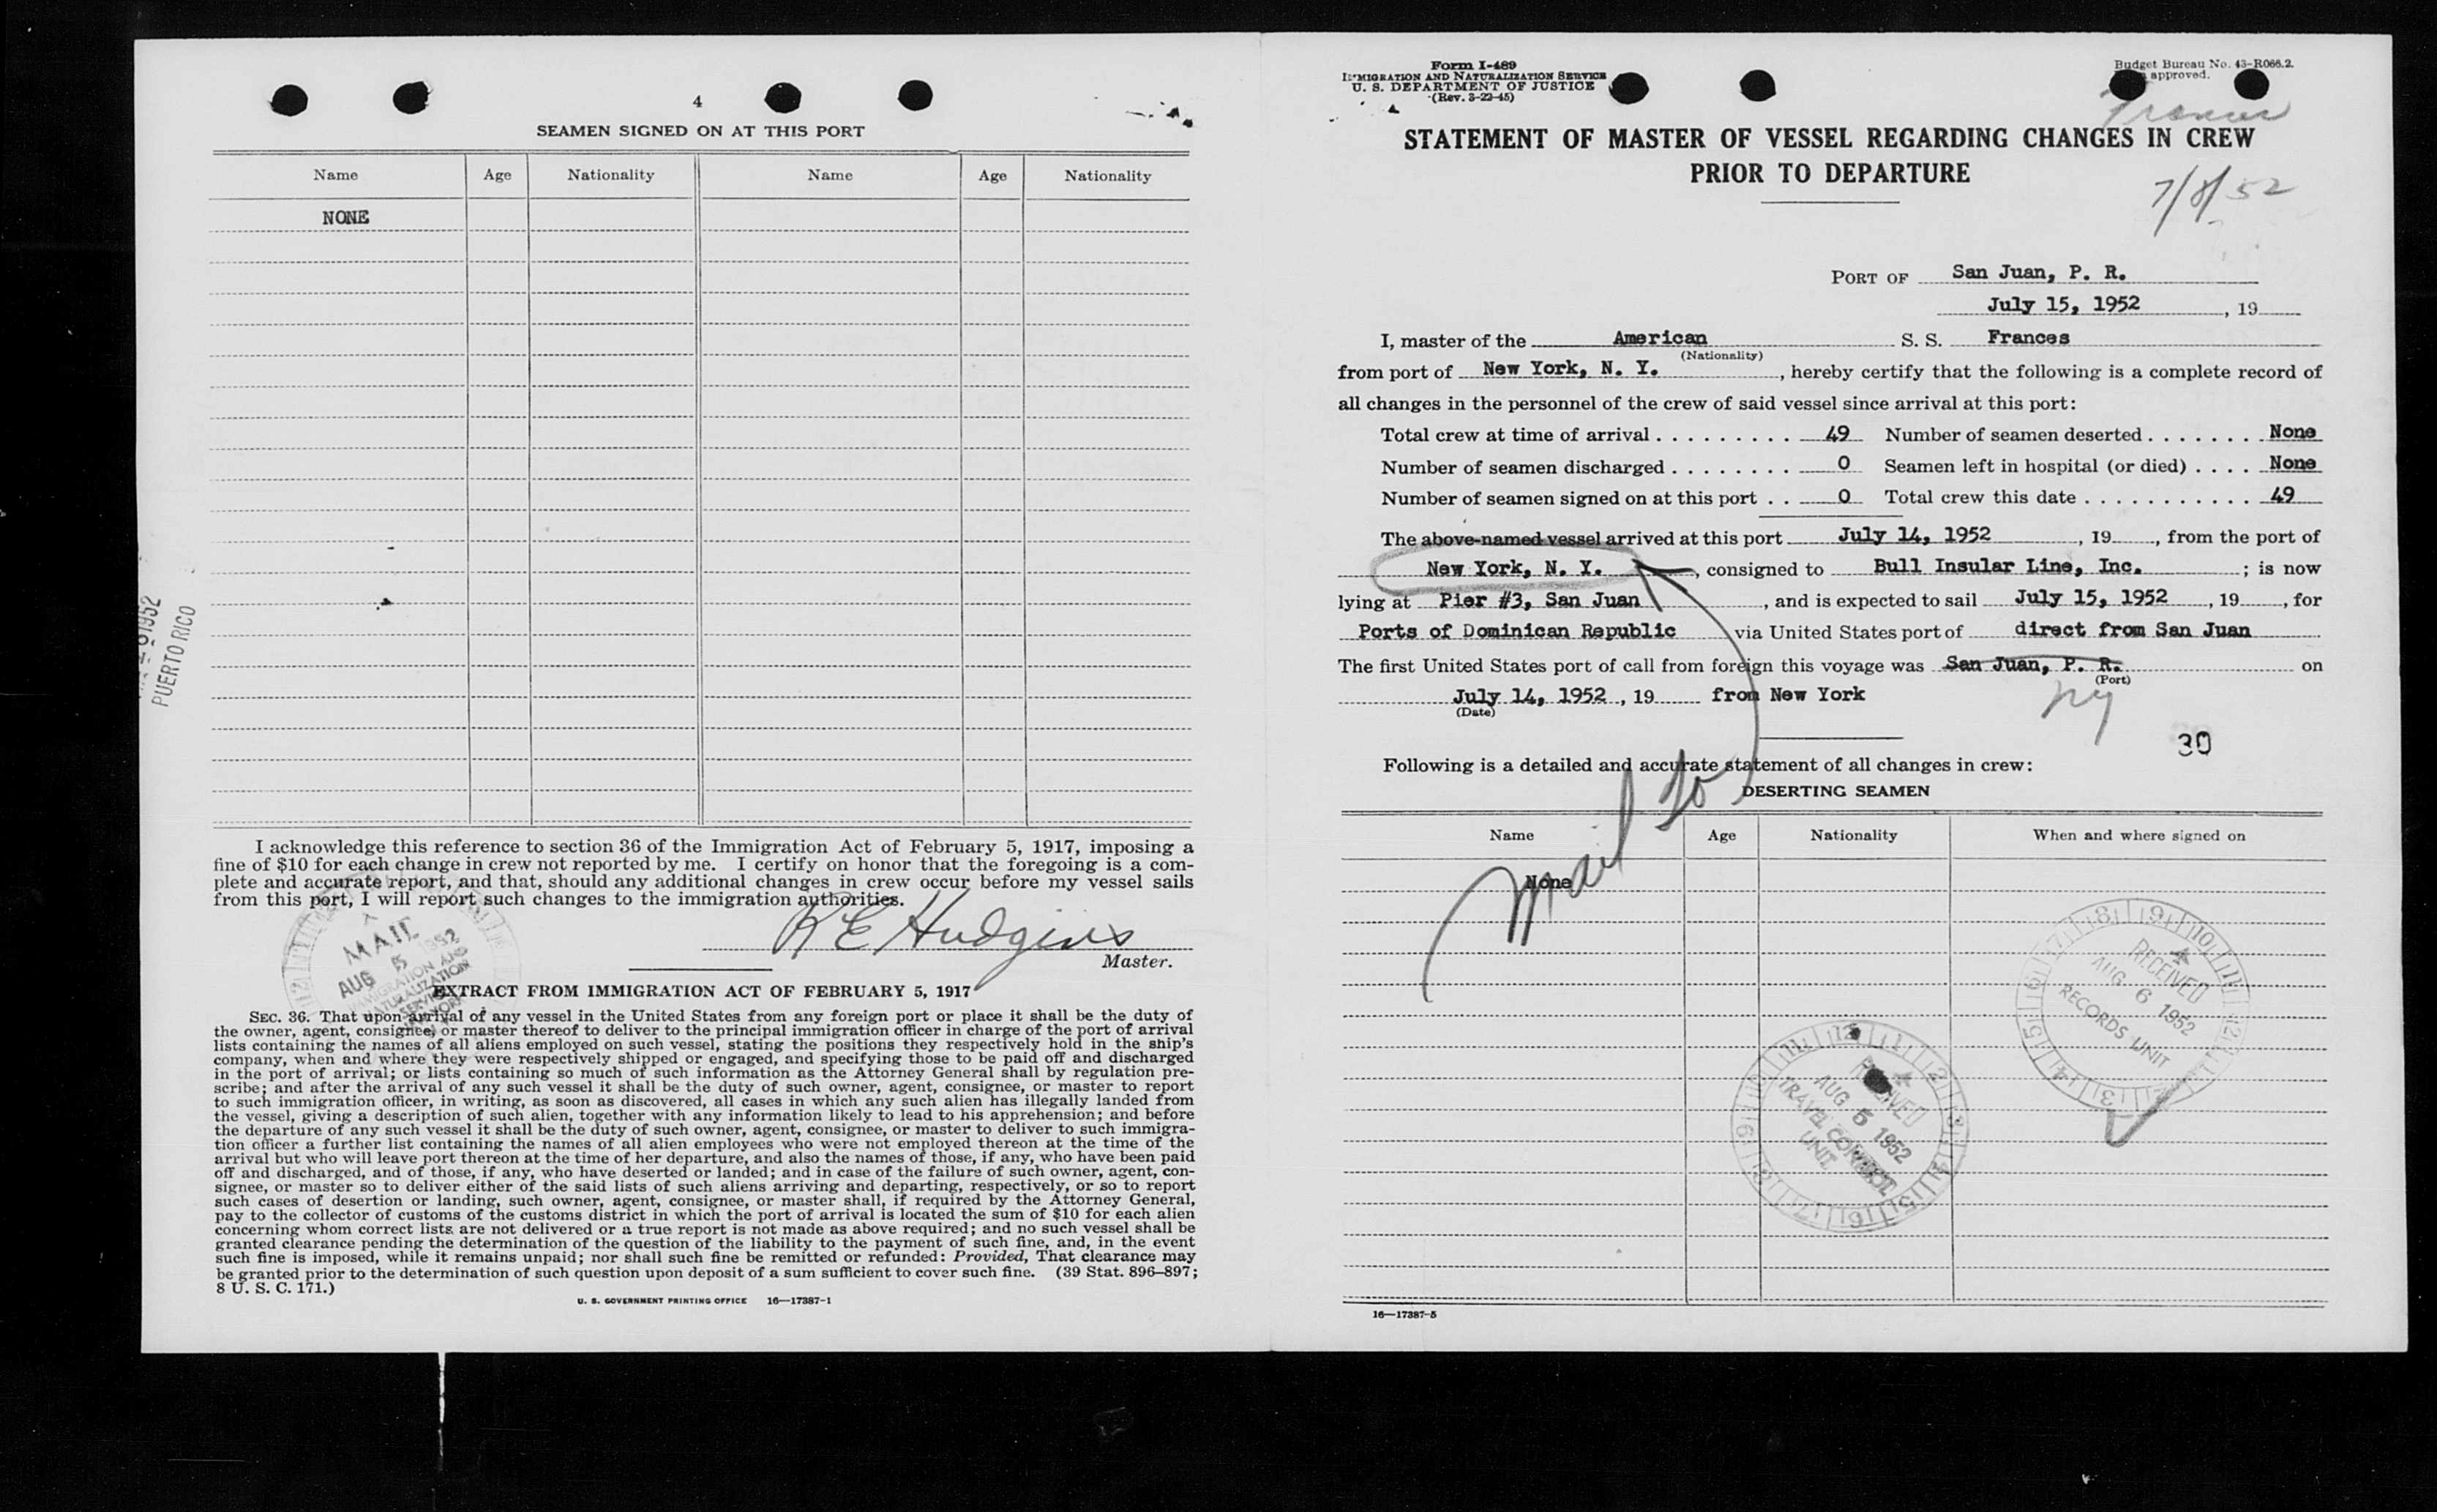 4
SEAMEN SIGNED ON AT THIS PORT
Name Age Nationality Name Age Nationality
NONE
1952
PUERTO RICO
I acknowledge this reference to section 36 of the Immigration Act of February 5, 1917, imposing a
fine of $10 for each change in crew not reported by me. I certify on honor that the foregoing is a com-
plete and accurate report, and that, should any additional changes in crew occur before my vessel sails
from this port, I will report such changes to the immigration authorities.
R E Hudgins
Master.
MAIL
AUG 5 1952
IMMIGRATION AND
NATURALIZATION
SERVICE
EXTRACT FROM IMMIGRATION ACT OF FEBRUARY 5, 1917
SEC. 36. That upon arrival of any vessel in the United States from any foreign port or place it shall be the duty of
the owner, agent, consignee, or master thereof to deliver to the principal immigration officer in charge of the port of arrival
lists containing the names of all aliens employed on such vessel, stating the positions they respectively hold in the ship's
company, when and where they were respectively shipped or engaged, and specifying those to be paid off and discharged
in the port of arrival; or lists containing so much of such information as the Attorney General shall by regulation pre-
scribe; and after the arrival of any such vessel it shall be the duty of such owner, agent, consignee, or master to report
to such immigration officer, in writing, as soon as discovered, all cases in which any such alien has illegally landed from
the vessel, giving a description of such alien, together with any information likely to lead to his apprehension; and before
the departure of any such vessel it shall be the duty of such owner, agent, consignee, or master to deliver to such immigra-
tion officer a further list containing the names of all alien employees who were not employed thereon at the time of the
arrival but who will leave port thereon at the time of her departure, and also the names of those, if any, who have been paid
off and discharged, and of those, if any, who have deserted or landed; and in case of the failure of such owner, agent, con-
signee, or master so to deliver either of the said lists of such aliens arriving and departing, respectively, or so to report
such cases of desertion or landing, such owner, agent, consignee, or master shall, if required by the Attorney General,
pay to the collector of customs of the customs district in which the port of arrival is located the sum of $10 for each alien
concerning whom correct lists are not delivered or a true report is not made as above required; and no such vessel shall be
granted clearance pending the determination of the question of the liability to the payment of such fine, and, in the event
such fine is imposed, while it remains unpaid; nor shall such fine be remitted or refunded: Provided, That clearance may
be granted prior to the determination of such question upon deposit of a sum sufficient to cover such fine. (39 Stat. 896–897;
8 U. S. C. 171.)
U. S. GOVERNMENT PRINTING OFFICE 16—17387-1
Form I-489
IMMIGRATION AND NATURALIZATION SERVICE
U. S. DEPARTMENT OF JUSTICE
(Rev. 3-22-45)
Budget Bureau No. 43-R066.2.
approved.
Frances
STATEMENT OF MASTER OF VESSEL REGARDING CHANGES IN CREW
PRIOR TO DEPARTURE
7/8/52
PORT OF San Juan, P. R.
July 15, 1952, 19
I, master of the American S. S. Frances
(Nationality)
from port of New York, N. Y., hereby certify that the following is a complete record of
all changes in the personnel of the crew of said vessel since arrival at this port:
Total crew at time of arrival . . . . . . . . . 49 Number of seamen deserted . . . . . . . . None
Number of seamen discharged . . . . . . . . 0 Seamen left in hospital (or died) . . . . None
Number of seamen signed on at this port . . 0 Total crew this date . . . . . . . . . . . 49
The above-named vessel arrived at this port July 14, 1952, 19, from the port of
New York, N. Y., consigned to Bull Insular Line, Inc.; is now
lying at Pier #3, San Juan, and is expected to sail July 15, 1952, 19, for
Ports of Dominican Republic via United States port of direct from San Juan
The first United States port of call from foreign this voyage was San Juan, P. R. on
(Port)
July 14, 1952, 19 from New York
(Date)
ny
30
Following is a detailed and accurate statement of all changes in crew:
Mail to
DESERTING SEAMEN
Name Age Nationality When and where signed on
None
RECEIVED
AUG 6 1952
RECORDS UNIT
RECEIVED
AUG 5 1952
TRAVEL CONTROL
UNIT
16—17387-5